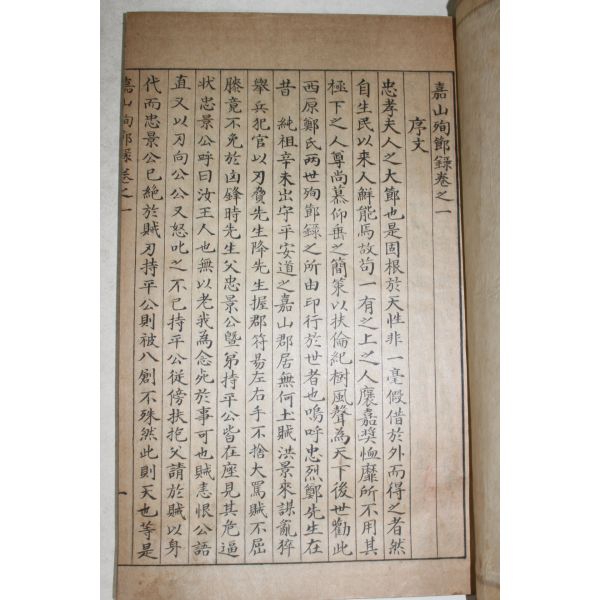 嘉山殉節錄卷之一
序文
忠孝夫人之大節也是固根於天性非一毫假借於外而得之者然
自生民以來人鮮能焉故苟一有之上之人襃嘉奬恤靡所不用其
極下之人尊尚慕仰垂之簡策以扶倫紀樹風聲為天下後世勸此
西原鄭氏兩世殉節錄之所由印行於世者也嗚呼忠烈鄭先生在
昔　純祖辛未出守平安道之嘉山郡居無何土賊洪景來謀亂猝
舉兵犯官以刃脅先生降先生握郡符易左右手不捨大罵賊不屈
膝竟不免於凶鋒時先生父忠景公曁弟持平公皆在座見其危逼
狀忠景公呼曰汝王人也無以老我為念死於事可也賊恚恨公語
直又以刃向公公又怒叱之不已持平公從傍扶抱父請於賊以身
代而忠景公已絕於賊刃持平公則被八創不殊然此則天也等是
嘉山殉節錄卷之一
一